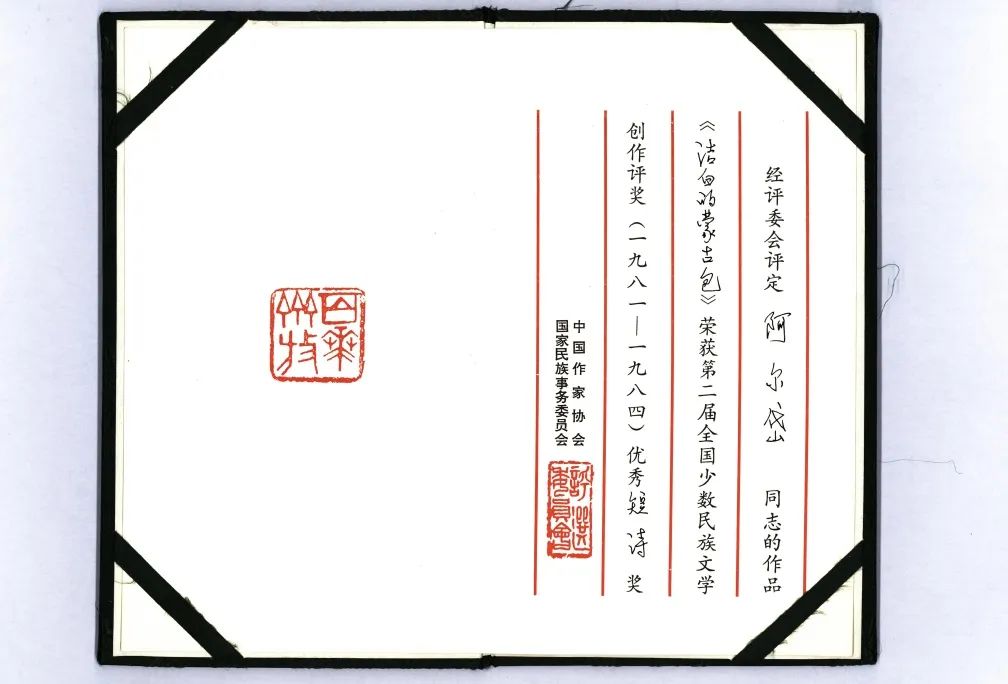 经评委会评定 阿尔岱 同志的作品
《洁白的蒙古包》荣获第二届全国少数民族文学
创作评奖（一九八一—一九八四）优秀短诗奖
中国作家协会
国家民族事务委员会
評選
委員會